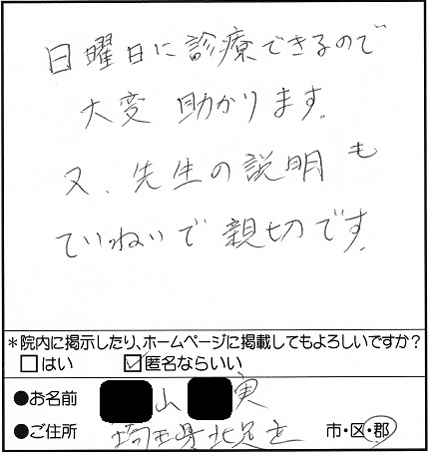 日曜日に診療できるので
大変 助かります。
又、先生の説明も
ていねいで 親切です。
＊院内に掲示したり、ホームページに掲載してもよろしいですか？
□はい ☑匿名ならいい
●お名前 山 実
●ご住所 埼玉県北足立 市・区・郡